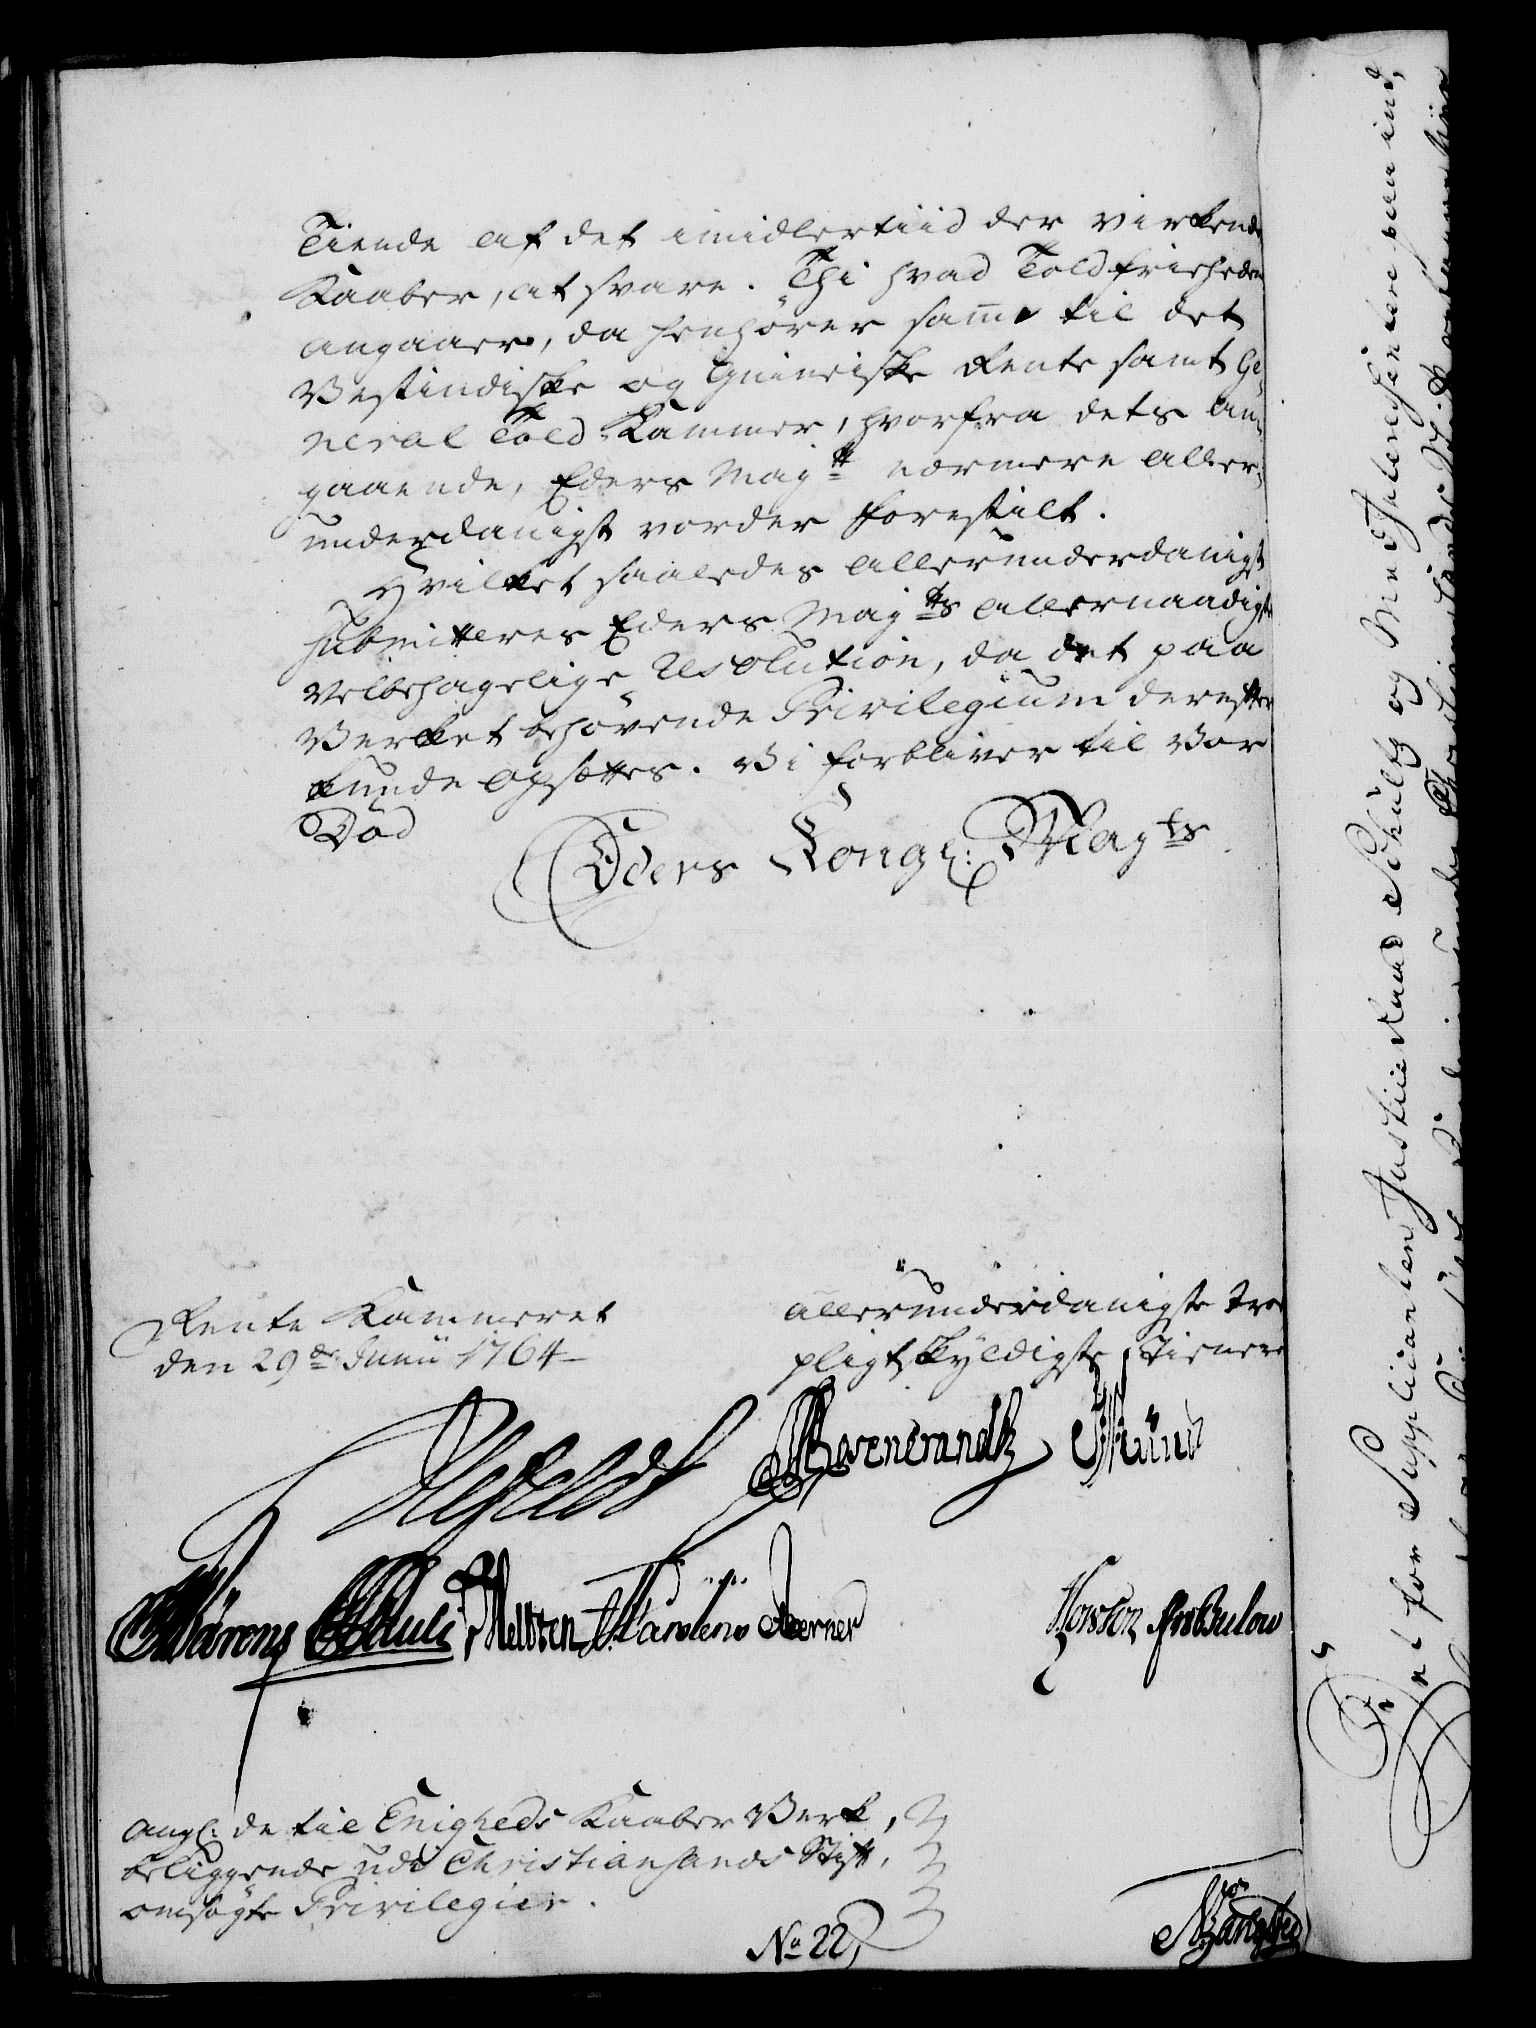 Tiende af det imidlertiid der virkende
Kaaber, at svare. Thi hvad Toldfrieheden
angaaer, da henhører samme til det
Vestindiske og Guineiske Rente samt Ge¬
neral Told-Kammer, hvorfra dets an¬
gaaende, Eders Maj:tt nærmere aller¬
underdanigst vorder forestilt.
Hvilket saaledes allerunderdanigst
submitteres Eders Maj:tts allernaadigste
velbehagelige Resolution, da det paa
Verket behøvende Privilegium derefter
kunde opsættes. Vi forbliver til vor
Død
Eders Kongl: Mayts
Rente Kammeret
den 29de Junii 1764
allerunderdanigste troe
pligtskyldigste Tienere
Ahlefeldt Rosencrandtz
Pauli Holsten Werner
Bulow
Angl: de til Enigheds Kaaber Verk,
beliggende udi Christiansands Stift,
omsøgte Privilegier.
No 22,
for Supplicanten Justice Raad Schultz og Med Interessentere